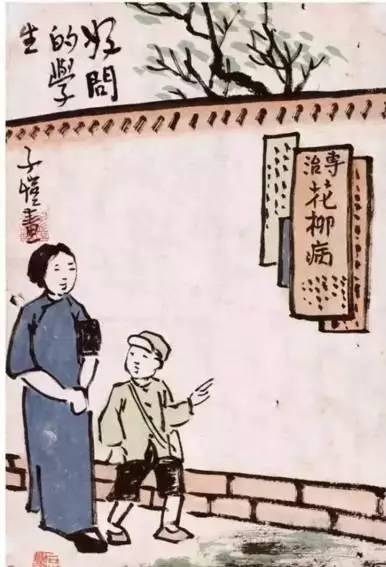 好問
的學
生
子愷畫
專
治
花柳病